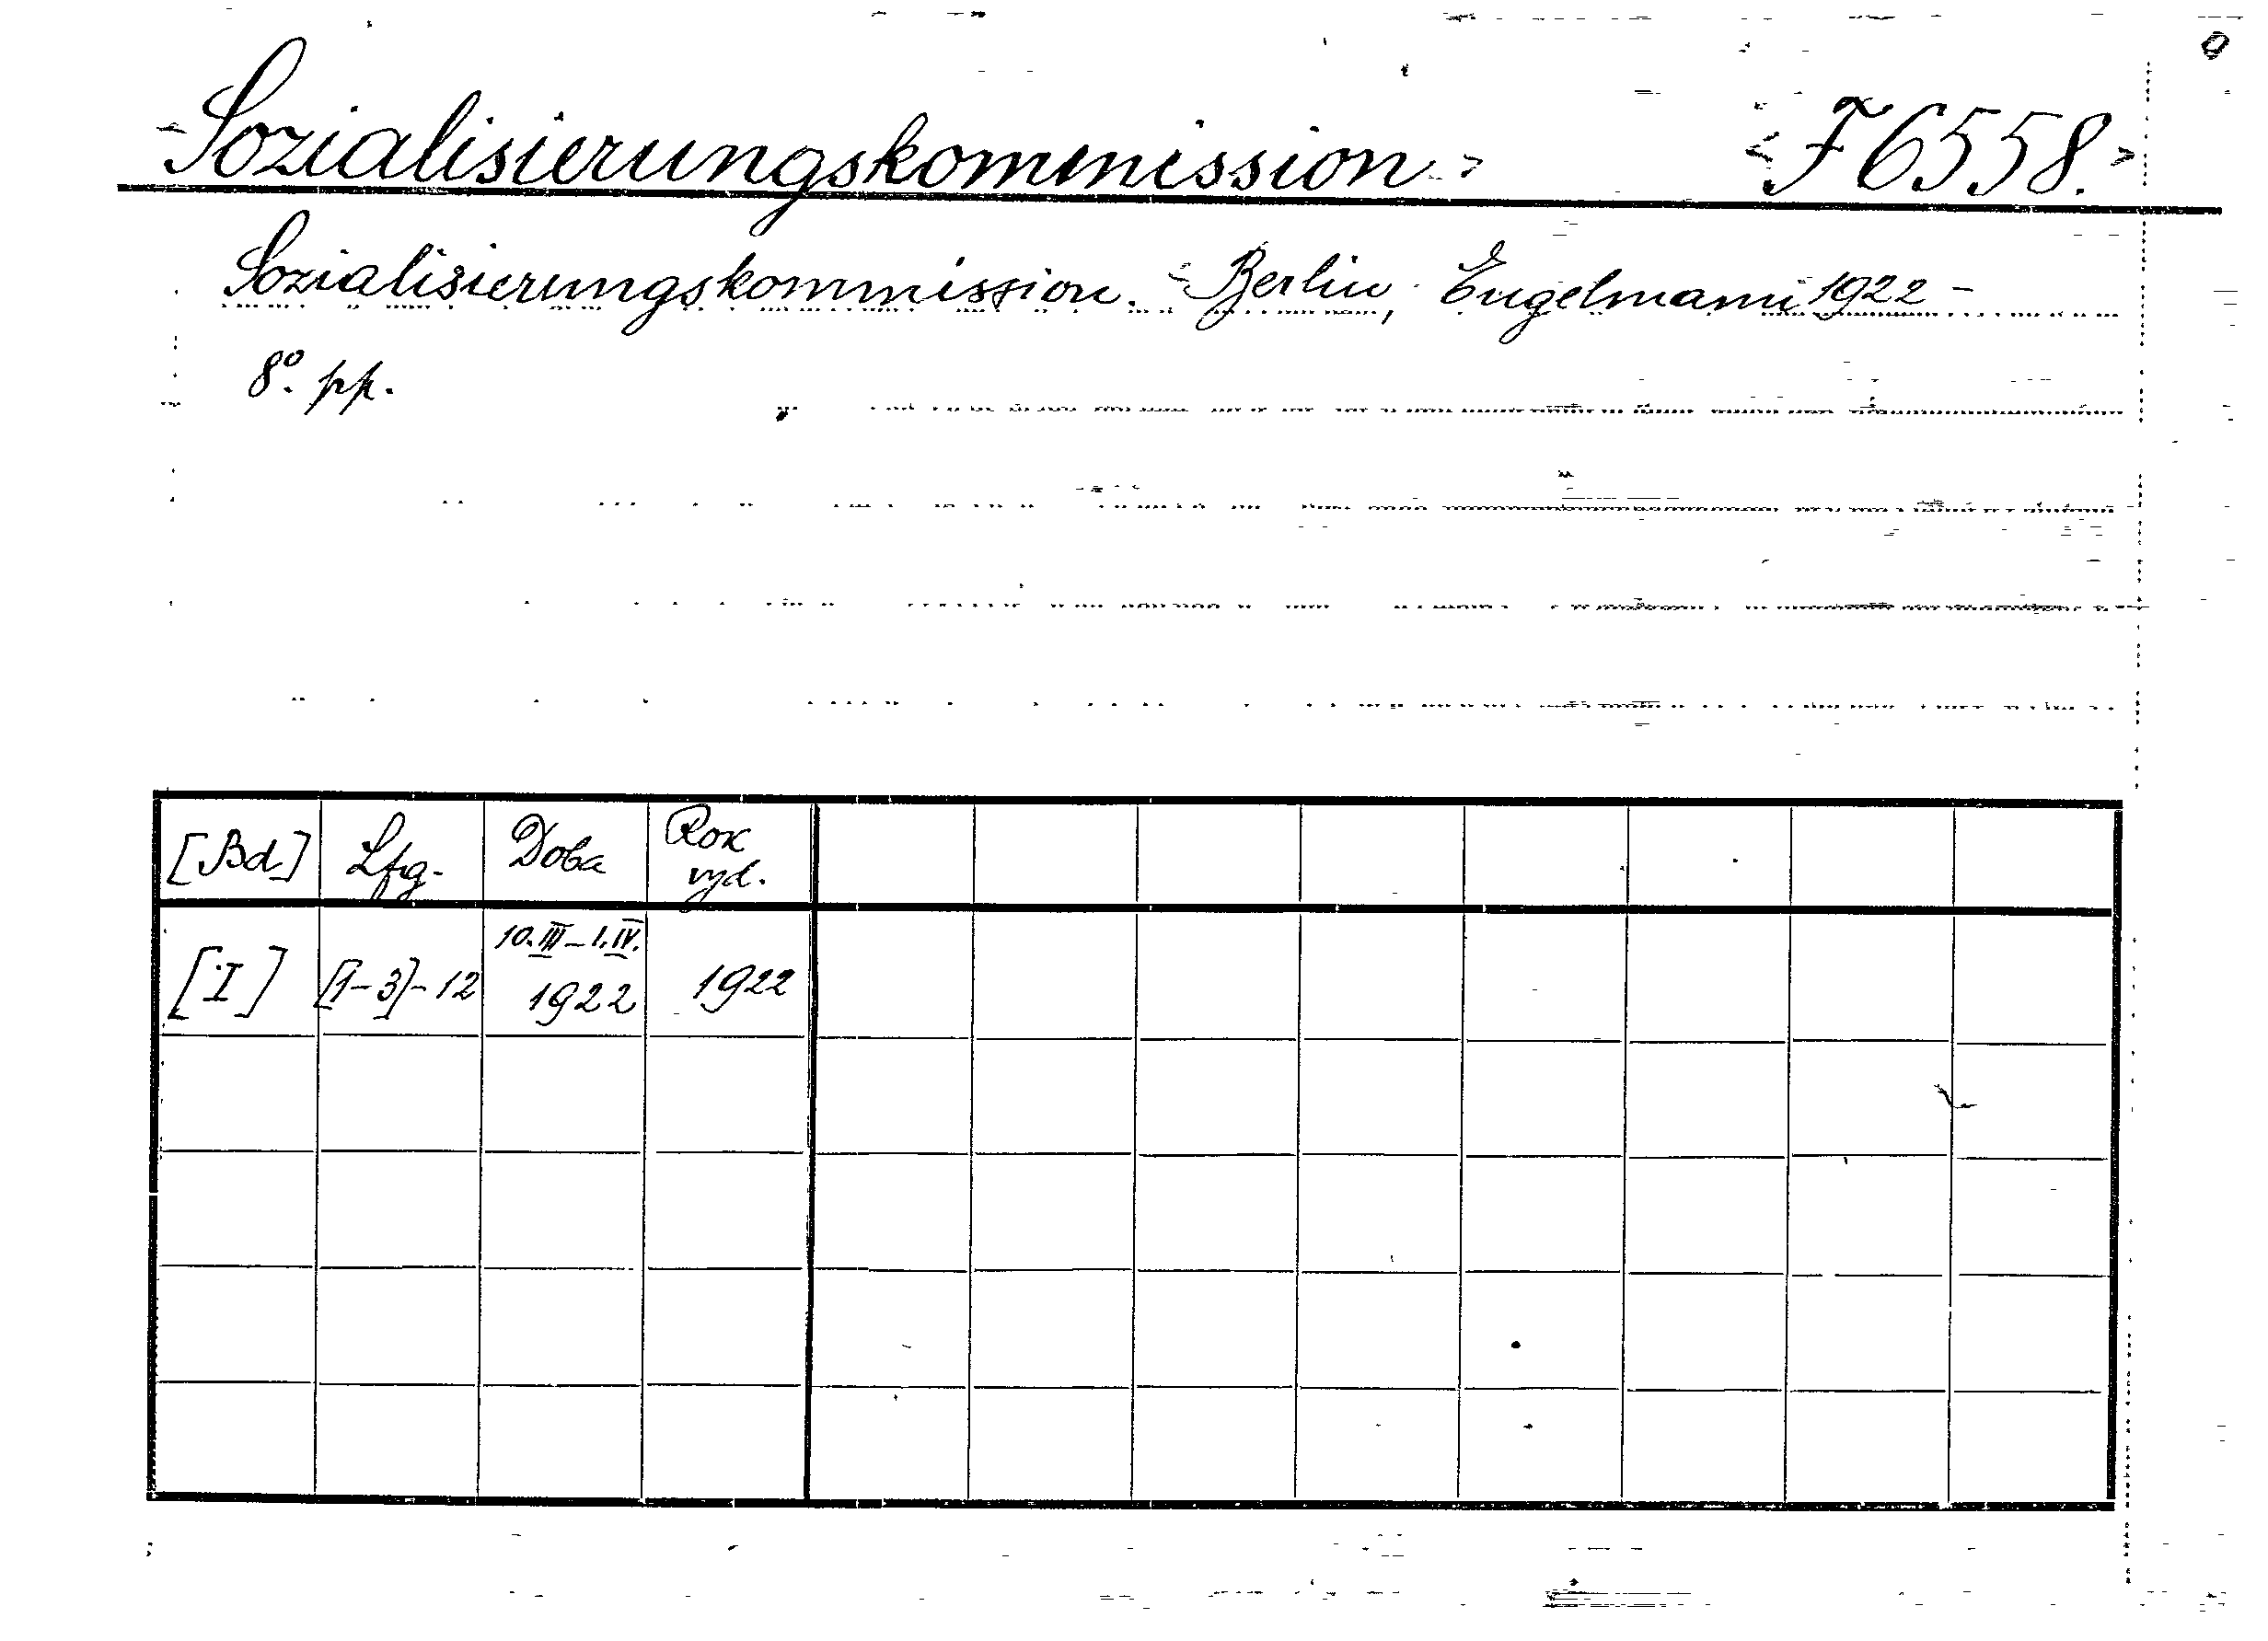 Sozialisierungskommission. F 6558.
Sozialisierungskommission. - Berlin, Engelmann 1922 -
8°. pp.
[Bd] Lfg. Doba Rok vyd.
[I] [1-3]-12 10.III-1.IV. 1922 1922